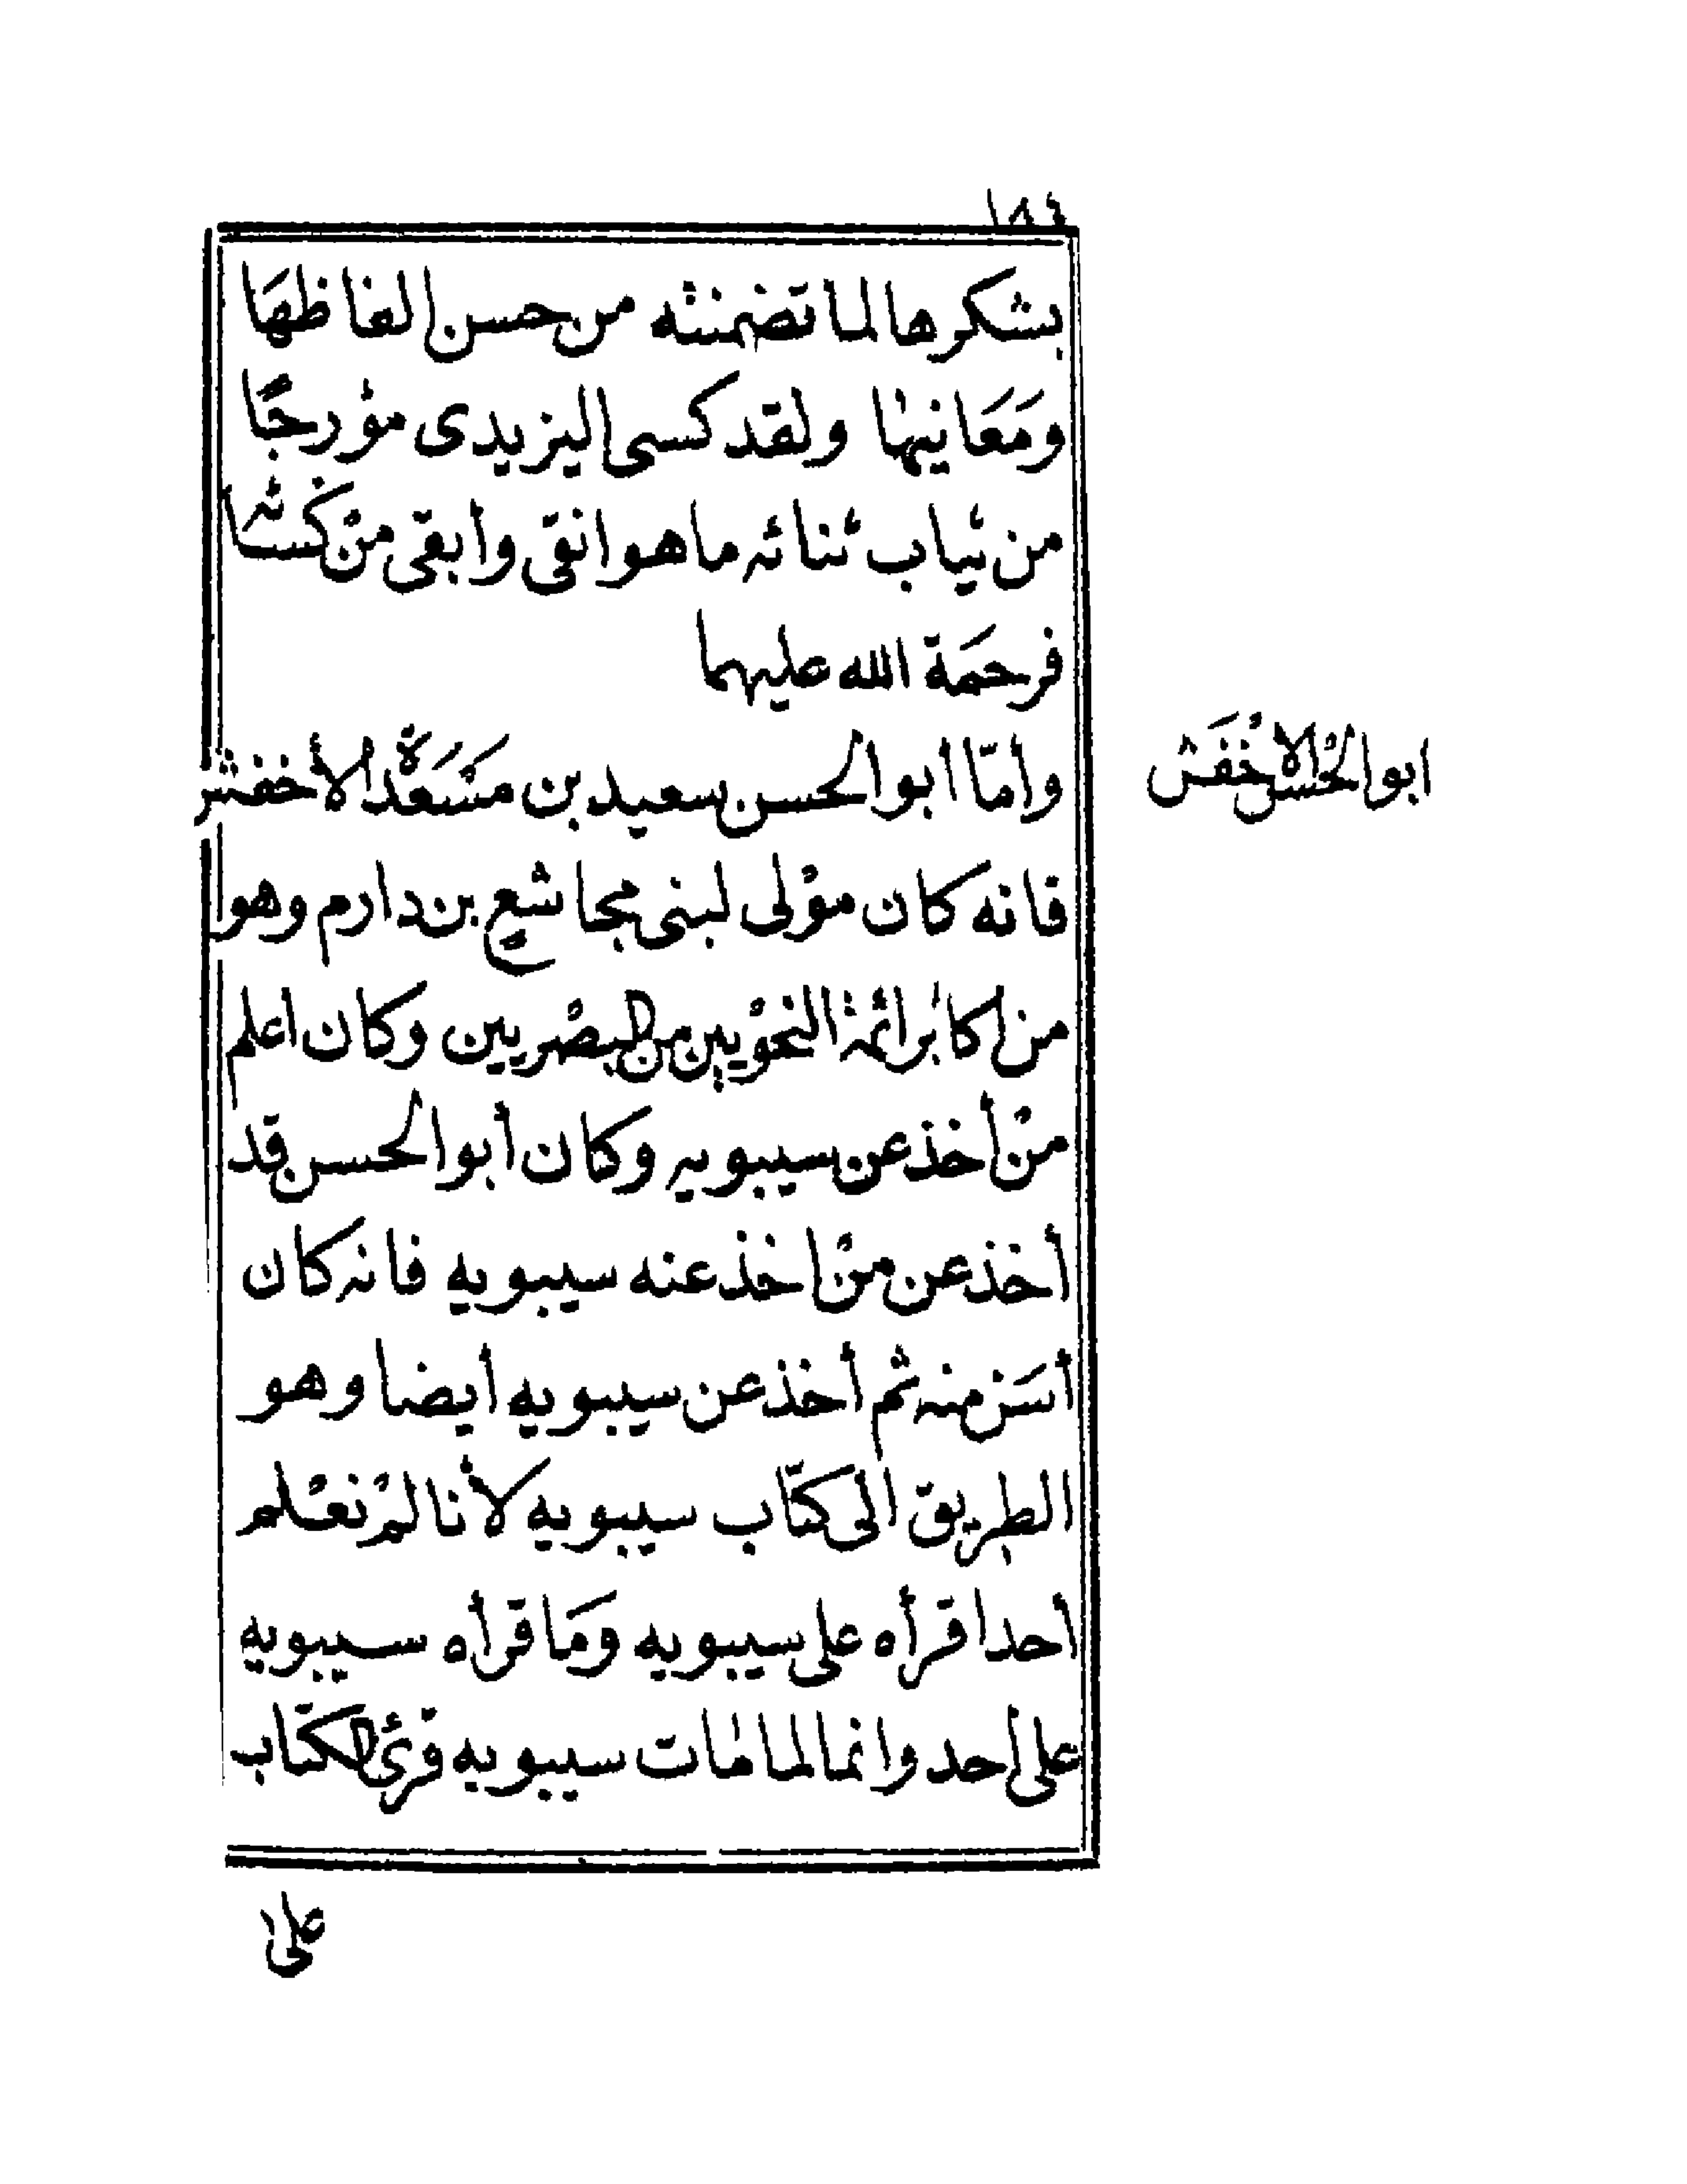 ١٨٤
بشكرها لما تضمنته من حسن الفاظهَا
ومَعَانيها ولقد كسى اليزيدى مؤرجًا
من ثياب ثنائه ما هو انقى وأبقى منْ كسائه
فرحمَة الله عليهما
وأمّا ابو الحسن سعيد بن مَسْعَدَة الأخفش
ابو الحسن الاخْفَش
فانه كان موْلى لبنى مجاشع بن دارم وهو
من اكابر ائمة النحْويين من البصْريين وكان اعلم
منْ أخذ عن سيبويه وكان أبو الحسن قد
أخذ عن منْ اخذ عنه سيبويه فانه كان
أسَن منه ثم أخذ عن سيبويه أيضا وهو
الطريق الى كتاب سيبويه لأنا لمْ نعْلم
أحدا قرأه على سيبويه ومَا قرأه سيبويه
على أحد وانما لما مات سيبويه قرئ الكتاب
على